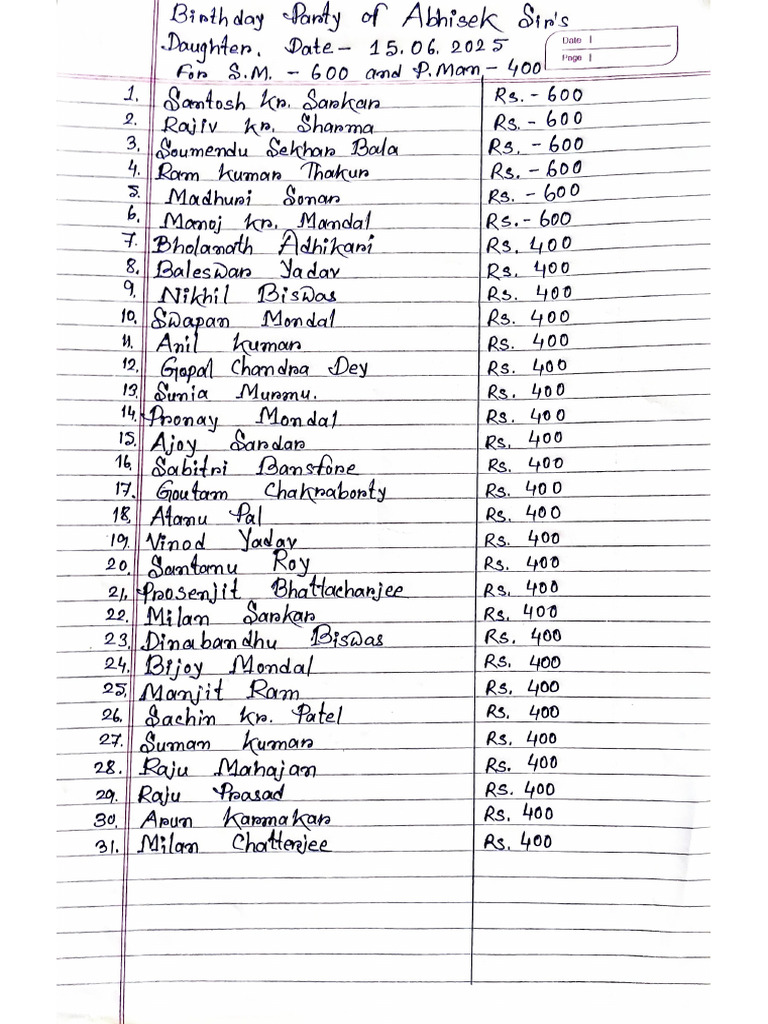 Birthday Party of Abhisek Sir's
Daughter. Date - 15.06.2025
Date
Page
For S.M. - 600 and P.Man - 400
1. Santosh Kr. Sarkar Rs. - 600
2. Rajiv Kr. Sharma Rs. - 600
3. Soumendu Sekhar Bala Rs. - 600
4. Ram Kumar Thakur Rs. - 600
5. Madhuri Sonar Rs. - 600
6. Manoj Kr. Mandal Rs. - 600
7. Bholanath Adhikari Rs. 400
8. Baleswar Yadav Rs. 400
9. Nikhil Biswas Rs. 400
10. Swapan Mondal Rs. 400
11. Anil Kumar Rs. 400
12. Gopal Chandra Dey Rs. 400
13. Sunia Murmu. Rs. 400
14. Pronay Mondal Rs. 400
15. Ajoy Sardar Rs. 400
16. Sabitri Bansfore Rs. 400
17. Goutam Chakraborty Rs. 400
18. Atanu Pal Rs. 400
19. Vinod Yadav Rs. 400
20. Santanu Roy Rs. 400
21. Prosenjit Bhattacharjee Rs. 400
22. Milan Sarkar Rs. 400
23. Dinabandhu Biswas Rs. 400
24. Bijoy Mondal Rs. 400
25. Manjit Ram Rs. 400
26. Sachin Kr. Patel Rs. 400
27. Suman Kumar Rs. 400
28. Raju Mahajan Rs. 400
29. Raju Prasad Rs. 400
30. Arun Karmakar Rs. 400
31. Milan Chatterjee Rs. 400